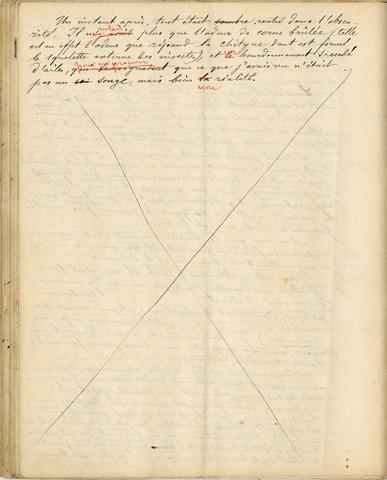 Un instant après, tout était rentré dans l'obscu
rité. Il ne restait plus que l'odeur de corne brûlée (telle
est en effet l'odeur que répand la chityne dont est formé
le squelette externe des insectes), et un bourdonnement
d'aile, pour me prouver que ce que j'avais vu n'était
pas un songe, mais bien une réalité.